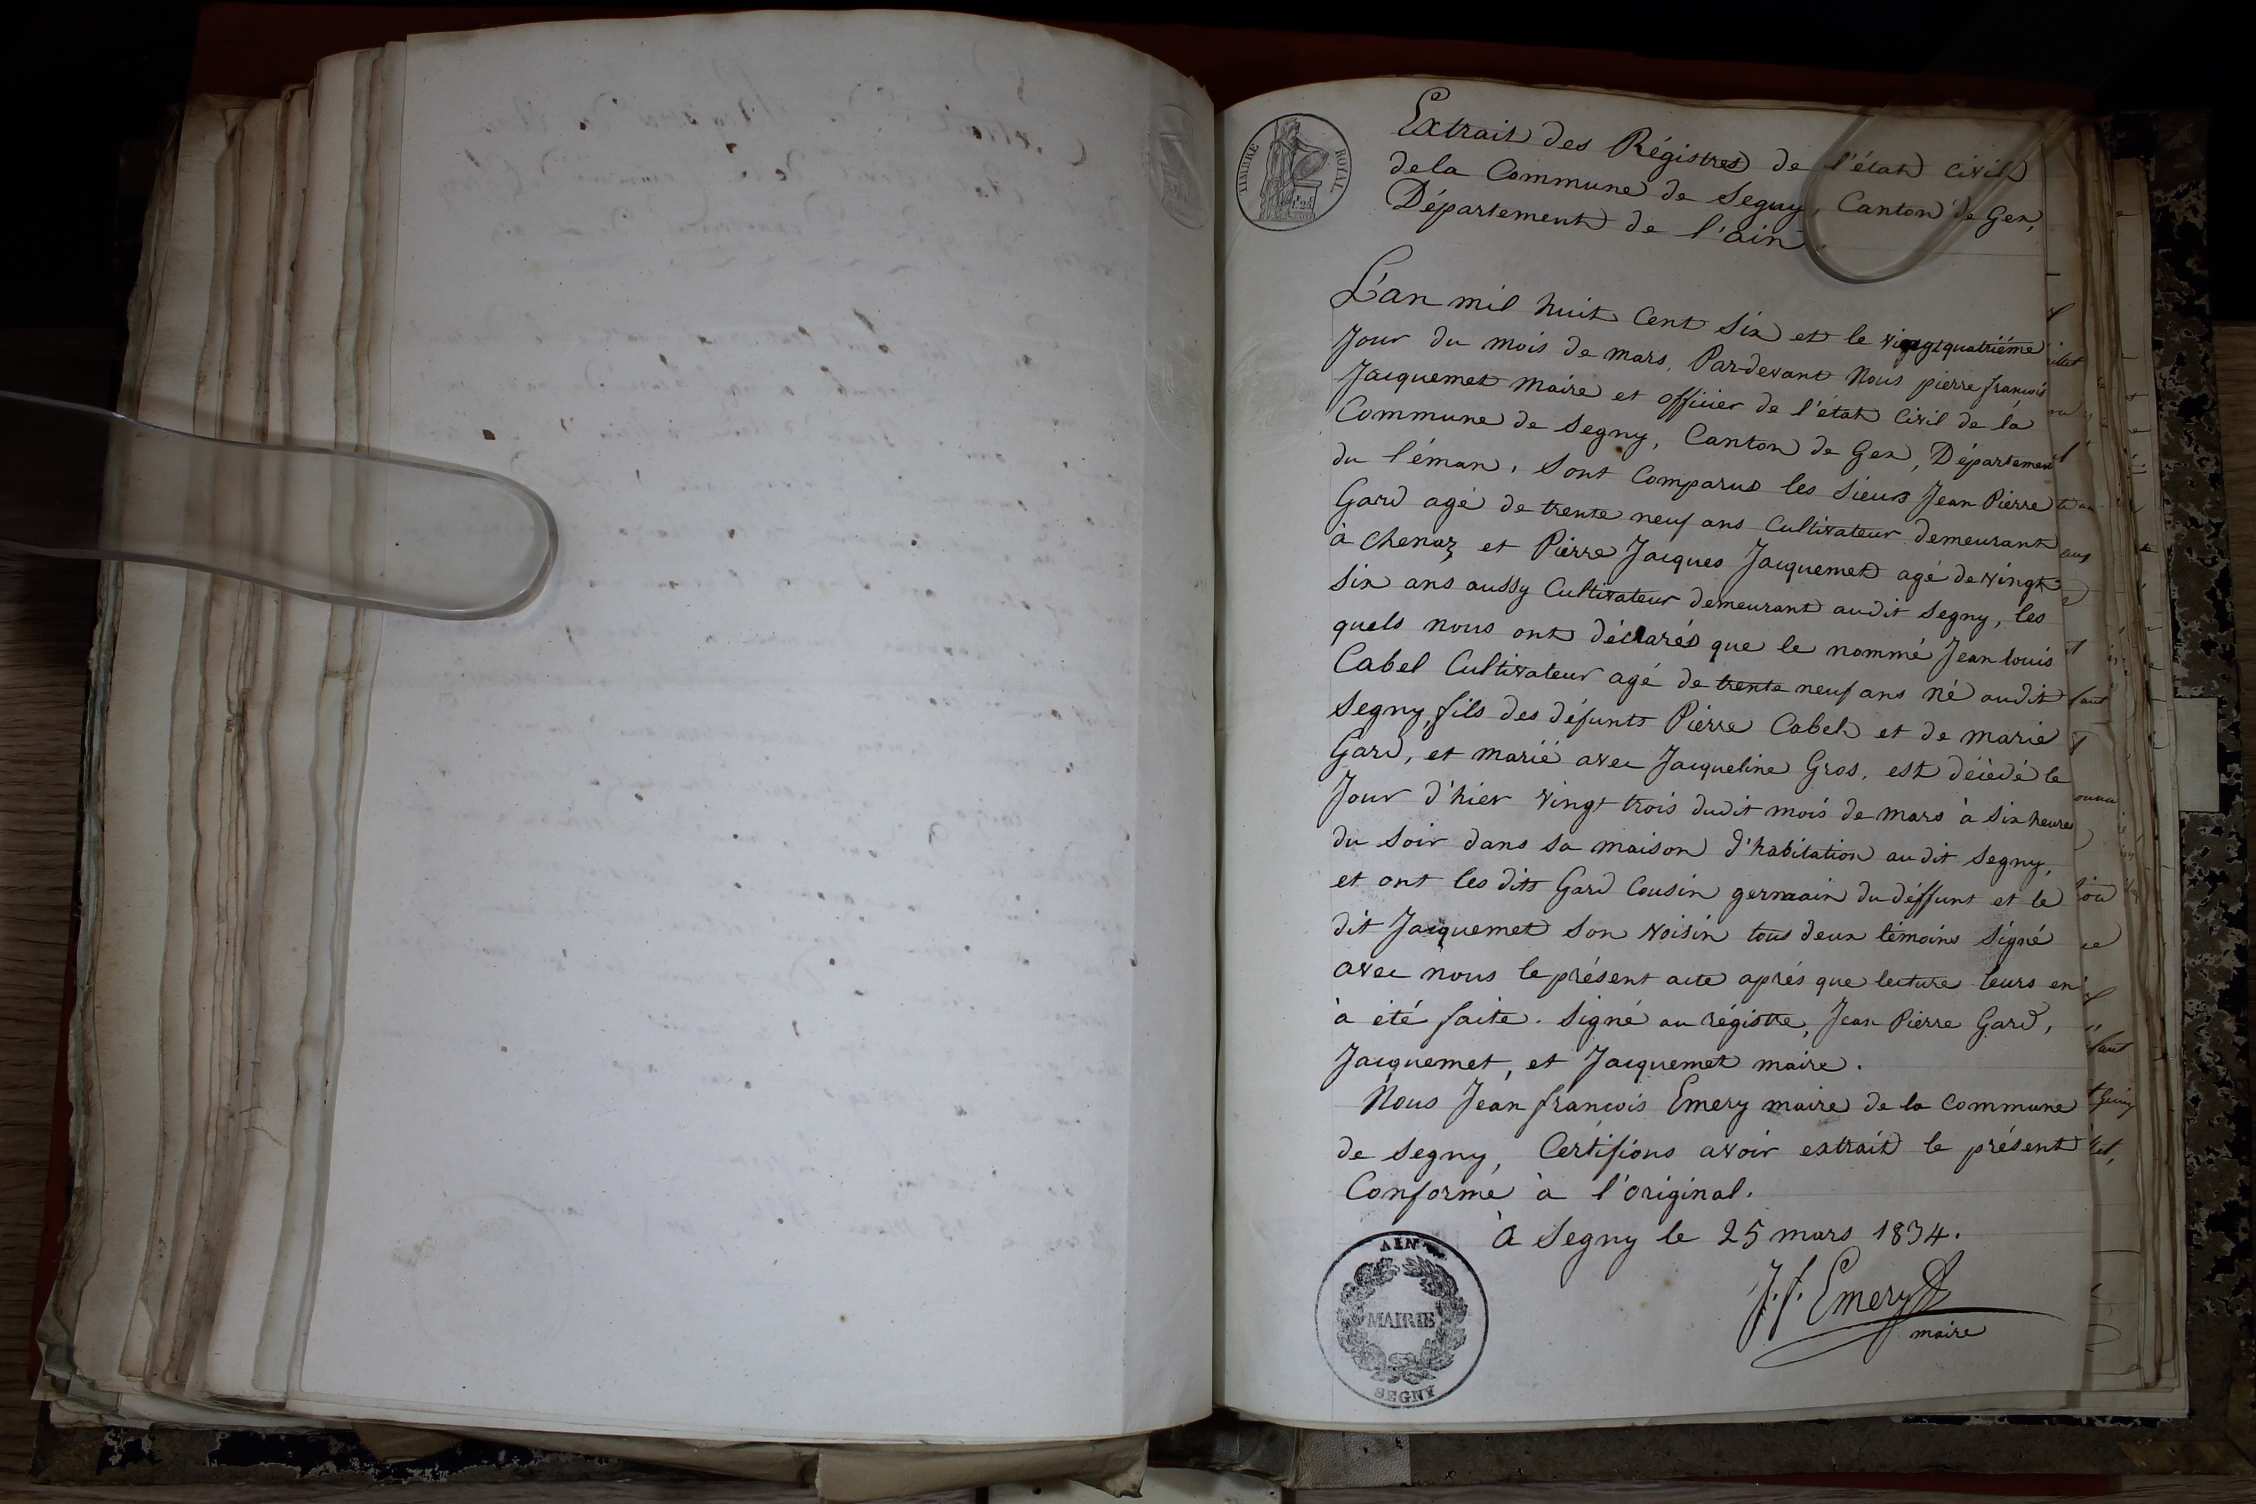 TIMBRE ROYAL
Extrait des Régistres de l'état civil
dela Commune de Segny, Canton de Gex,
Département de l'ain.
L'an mil huit Cent Six et le vingtquatriéme
Jour du mois de mars, Par-devant Nous pierre françois
Jacquemet maire et officier de l'état Civil de la
Commune de Segny, Canton de Gex, Département
du léman, Sont Comparus les Sieurs Jean Pierre
Gard agé de trente neuf ans Cultivateur demeurant
à Chenaz et Pierre Jacques Jacquemet agé de vingt
Six ans aussy Cultivateur demeurant audit Segny, les
quels nous ont déclarés que le nommé Jean louis
Cabel Cultivateur agé de trente neuf ans né audit
Segny, fils des défunts Pierre Cabel et de marie
Gard, et marié avec Jacqueline Gros, est décèdé le
Jour d'hier vingt trois dudit mois de mars à Six heures
du Soir dans sa maison d'habitation au dit Segny,
et ont les dits Gard Cousin germain du déffunt et le
dit Jacquemet Son voisin tous deux témoins Signé
avec nous le présent acte aprés que lecture leurs en
à été faite. Signé au régistre, Jean Pierre Gard,
Jacquemet, et Jacquemet maire.
Nous Jean françois Emery maire de la Commune
de Segny, Certifions avoir extrait le présent
Conforme à l'original.
à Segny le 25 mars 1834.
J. f. Emery
maire
AIN
MAIRIE
SEGNY